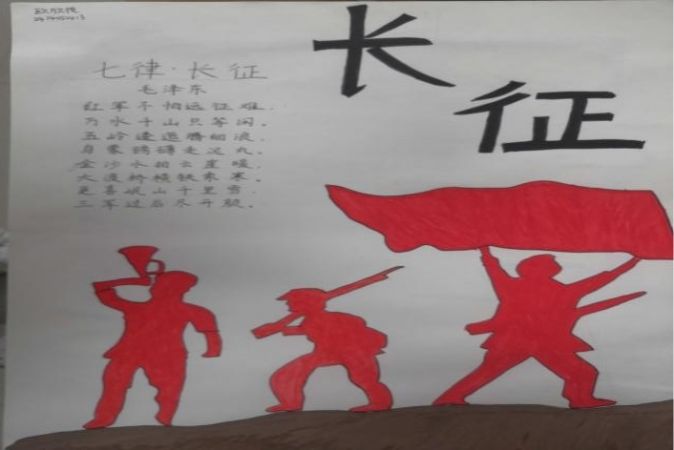 七律·长征
毛泽东
红军不怕远征难.
万水千山只等闲。
五岭逶迤腾细浪。
乌蒙磅礴走泥丸。
金沙水拍云崖暖.
大渡桥横铁索寒。
更喜岷山千里雪.
三军过后尽开颜。
长
征